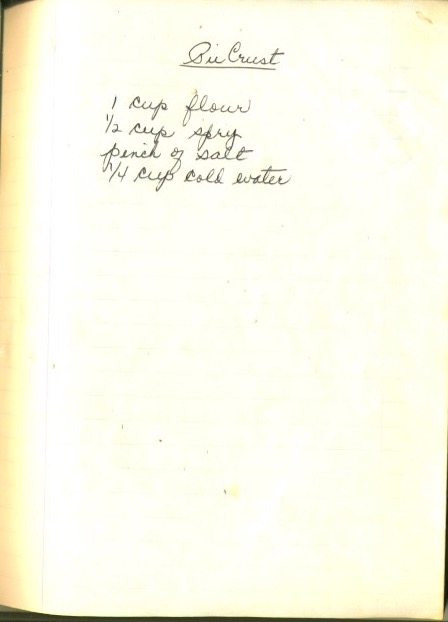 Pie Crust
1 cup flour
1/2 cup spry
pinch of salt
1/4 cup cold water